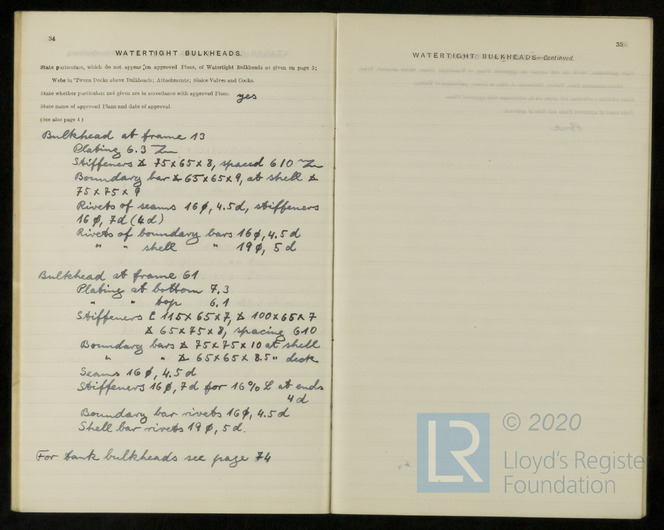 54
WATERTIGHT BULKHEADS.
State particulars, which do not appear on approved Plans, of Watertight Bulkheads as given on page 3;
Webs in 'Tween Decks above Bulkheads; Attachments; Sluice Valves and Cocks.
State whether particulars not given are in accordance with approved Plans. yes
State name of approved Plans and date of approval.
(See also page 4)
Bulkhead at frame 13
Plating 6.3
Stiffeners ∠ 75x65x8, spaced 610
Boundary bar ∠ 65x65x9, at shell ∠
75x75x9
Rivets of seams 16 ø, 4.5d, stiffeners
16 ø, 7d (4d)
Rivets of boundary bars 16 ø, 4.5 d
" " shell " 19 ø, 5 d
Bulkhead at frame 61
Plating at bottom 7.3
" " top 6.1
Stiffeners [ 115x65x7, ∠ 100x65x7
∠ 65x75x8, spacing 610
Boundary bars ∠ 75x75x10 at shell
" " ∠ 65x65x8.5 " deck
Seams 16 ø, 4.5 d
Stiffeners 16 ø, 7d for 16% L at ends
4 d
Boundary bar rivets 16 ø, 4.5 d
Shell bar rivets 19 ø, 5 d.
For tank bulkheads see page 74
55
WATERTIGHT BULKHEADS—Continued.
LR
© 2020
Lloyd's Register
Foundation